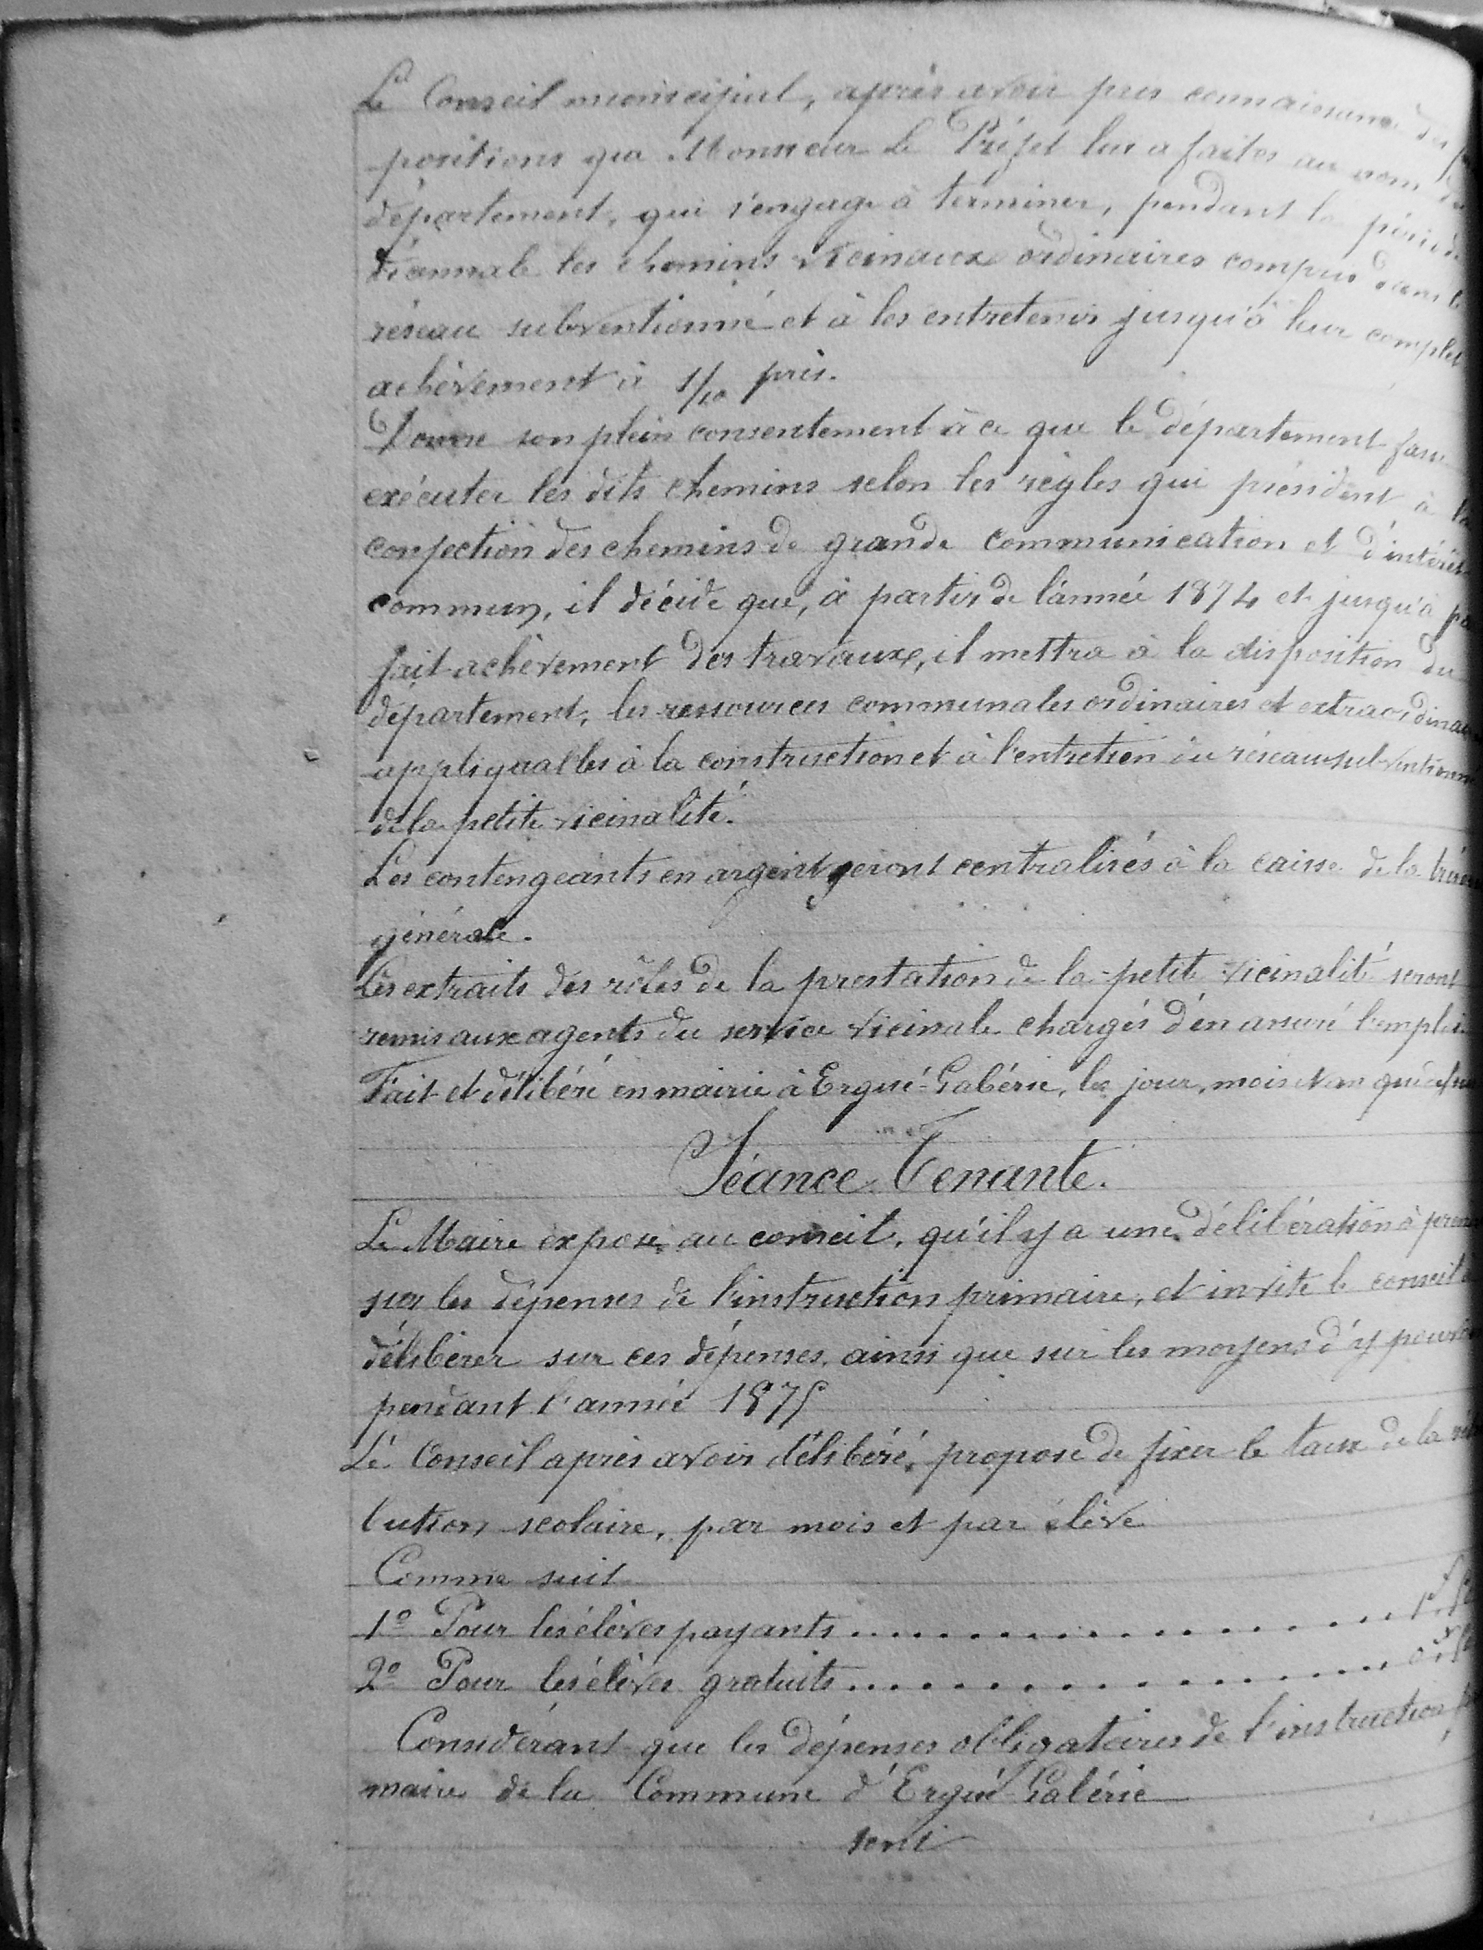 Le Conseil municipal, après avoir pris connaissance des
positions que Monsieur le Préfet leur a faites au nom du
département, qui s'engage à terminer, pendant la période
les chemins vicinaux ordinaires compris dans le
réseau subventionné et à les entretenir jusqu'à leur complet
achèvement à 1/10 près.
Donne son plein consentement à ce que le département fasse
exécuter les dits chemins selon les règles qui président à la
confection des chemins de grande communication et d'intérêt
commun, il décide que, à partir de l'année 1874 et jusqu'à
fait achèvement des travaux, il mettra à la disposition du
département, les ressources communales ordinaires et extraordinai
appliquables à la construction et à l'entretien du réseau subventionn
de la petite vicinalité.
Les contengeants en argent seront centralisés à la caisse de la
générale.
Les extraits des rôles de la prestation de la petite vicinalité seront
remis aux agents du service vicinale chargés d'en assuré l'emploi
Fait et délibéré en mairie à Ergué-Gabéric, les jour, mois et an que
Séance Tenante.
Le Maire expose au conseil, qu'il y a une délibération à pren
sur les dépenses de l'instruction primaire, et invite le conseil à
délibérer sur ces dépenses, ainsi que sur les moyens d'y pourvoi
pendant l'année 1875
Le Conseil après avoir délibéré, propose de fixer le taux de la
bution scolaire, par mois et par élève
Comme suit
1º Pour les élèves payants ................
2º Pour les élèves gratuits ................
Considérant que les dépenses obligatoires de l'instruction
maire de la Commune d'Ergué-Gabéric
sont